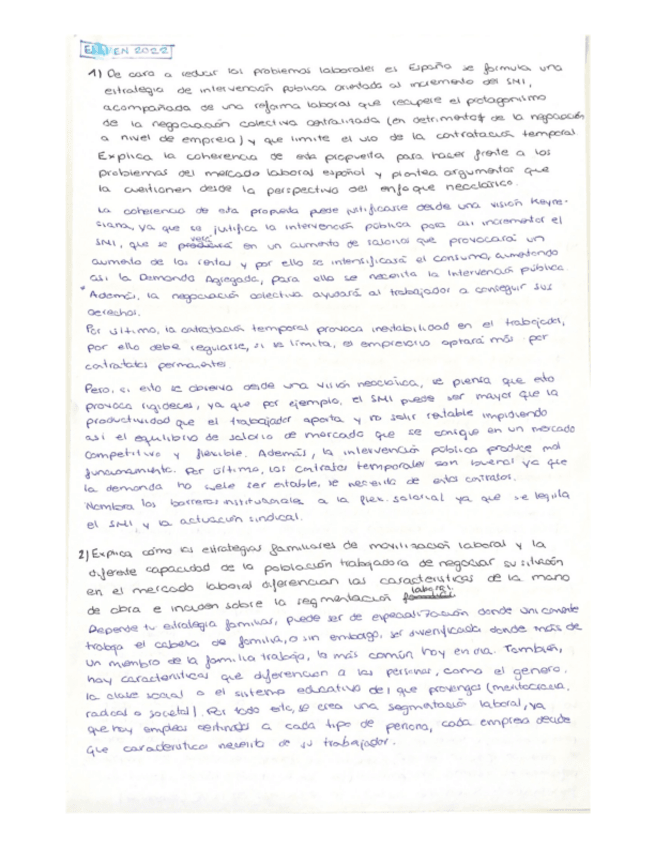 EN 2022
1) De cara a reducir los problemas laborales es España se formula una
estrategia de intervención pública orientada al incremento del SMI,
acompañada de una reforma laboral que recupere el protagonismo
de la negociación colectiva centralizada (en detrimento de la negociación
a nivel de empresa) y que limite el uso de la contratación temporal.
Explica la coherencia de esta propuesta para hacer frente a los
problemas del mercado laboral español y plantea argumentos que
la cuestionen desde la perspectiva del enfoque neoclásico.
La coherencia de esta propuesta puede justificarse desde una visión Keyne-
siana, ya que se justifica la intervención pública para así incrementar el
SMI, que se verá en un aumento de salarios que provocará un
aumento de las rentas y por ello se intensificará el consumo, aumentando
así la Demanda Agregada, para ello se necesita la intervención pública
* Además, la negociación colectiva ayudará al trabajador a conseguir sus
derechos.
Por último, la contratación temporal provoca inestabilidad en el trabajador,
por ello debe regularse, si se limita, el empresario optará más por
contratos permanentes.
Pero, si esto se observa desde una visión neoclásica, se piensa que esto
provoca rigideces, ya que por ejemplo, el SMI puede ser mayor que la
productividad que el trabajador aporta y no salir rentable impidiendo
así el equilibrio de salario de mercado que se consigue en un mercado
competitivo y flexible. Además, la intervención pública produce mal
funcionamiento. Por último, los contratos temporales son buenos ya que
la demanda no suele ser estable, se necesita de estos contratos.
Nombra las barreras institucionales a la flex. salarial ya que se regula
el SMI y la actuación sindical.
2) Explica cómo las estrategias familiares de movilización laboral y la
diferente capacidad de la población trabajadora de negociar su situación
en el mercado laboral diferencian las características de la mano
de obra e inciden sobre la segmentación laboral.
Depende tu estrategia familiar, puede ser de especialización donde unicamente
trabaja el cabeza de familia, o sin embargo, ser diversificada donde más de
un miembro de la familia trabaja, la más común hoy en día. También,
hay características que diferencian a las personas, como el género,
la clase social o el sistema educativo del que provengas (meritocracia,
radical o societal). Por todo esto, se crea una segmentación laboral, ya
que hay empleos destinados a cada tipo de persona, cada empresa decide
que característica necesita de su trabajador.